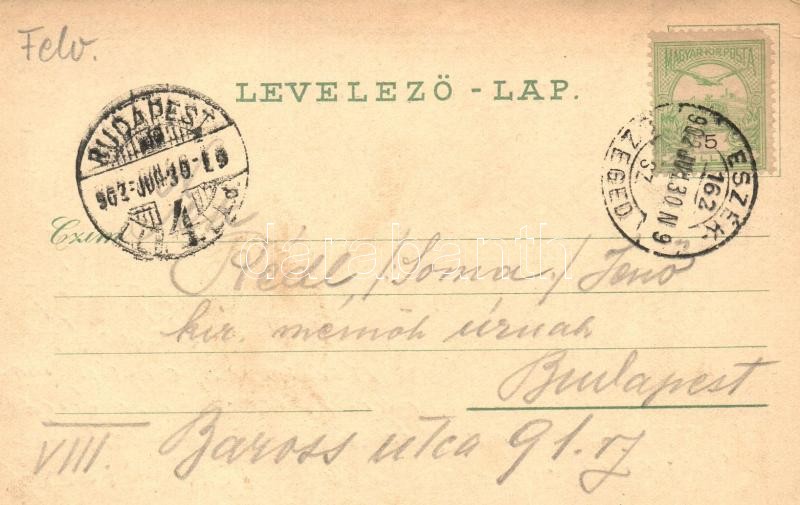 Felv.
LEVELEZŐ - LAP.
MAGYAR KIR. POSTA
5
BUDAPEST
902 JUN. 30
ESZÉK
SZEGED
162
902 JUN 30 N 9
Czím
darabanth
Rédl /Soma/ Jenő
kir. mérnök úrnak
Budapest
VIII. Baross utca 91. sz